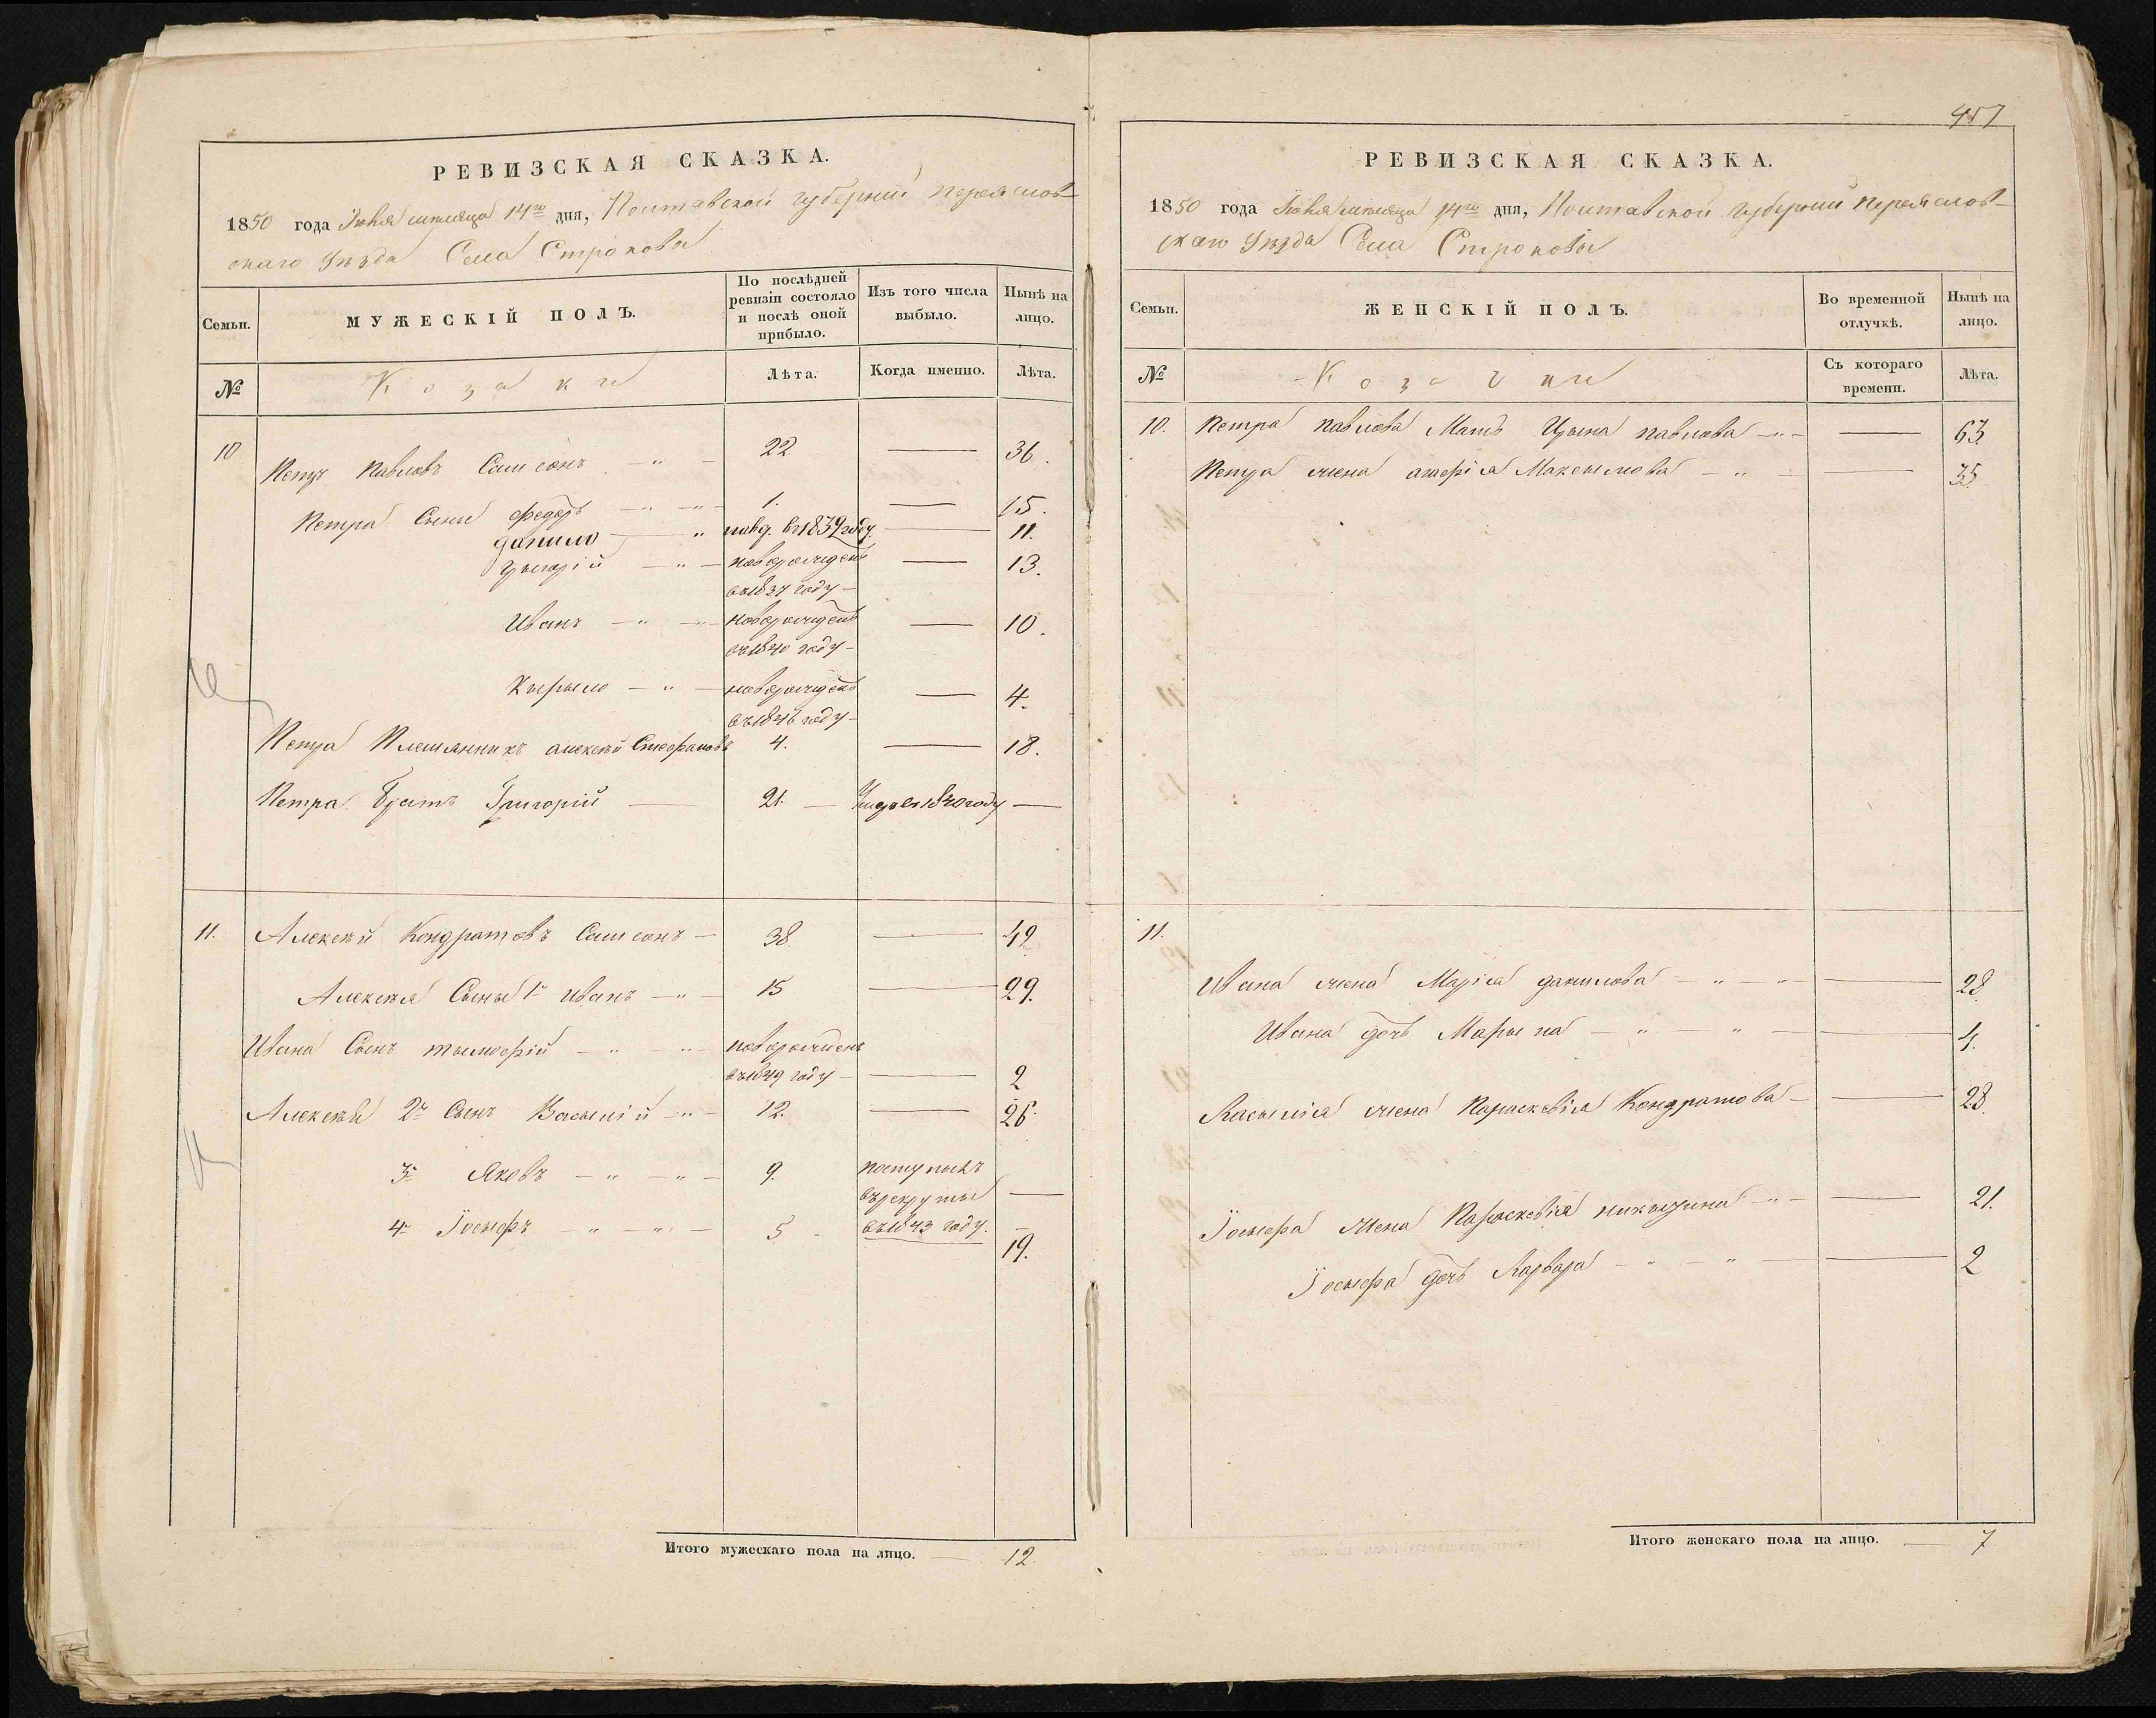 457
РЕВИЗСКАЯ СКАЗКА.
1850 года Іюня мѣсяца 14го дня, Полтавской губерніи Переяслов-
скаго Уѣзда Села Строковы
Семьи.
МУЖЕСКІЙ ПОЛЪ.
По послѣдней ревизіи состояло и послѣ оной прибыло.
Изъ того числа выбыло.
Нынѣ на лицо.
№
Козаки
Лѣта.
Когда именно.
Лѣта.
10 Петръ Павловъ Самсонъ 22 — 36.
Петра Сыны Федоръ 1. — 15.
Данило новр. въ 1839 году — 11.
Григорій новорожденъ въ 1837 году — 13.
Иванъ новорожденъ въ 1840 году — 10.
Кырыло новорожденъ въ 1846 году — 4.
Петра Племянникъ Алексѣй Стефановъ 4. — 18.
Петра Братъ Григорій — 21. — въ 1840 году —
11. Алексѣй Кондратовъ Самсонъ — 38. — 49
Алексѣя Сыны 1й Иванъ 15 — 29.
Ивана Сынъ Тымофій новорожденъ въ 1849 году — 2
Алексѣя 2й Сынъ Васылій 12. — 26
3й Яковъ 9. поступилъ въ рекруты въ 1843 году. —
4й Іосыфъ 5 — 19.
Итого мужескаго пола на лицо. — 12.
РЕВИЗСКАЯ СКАЗКА.
1850 года Іюня мѣсяца 14го дня, Полтавской губерніи Переяслов-
скаго Уѣзда Села Строковы
Семьи.
ЖЕНСКІЙ ПОЛЪ.
Во временной отлучкѣ.
Нынѣ на лицо.
№
Козачки
Съ котораго времени.
Лѣта.
10. Петра Павлова Мать Ирына Павлова — 63
Петра жена Максымова — 35
11.
Ивана жена Марія Данилова — 28
Ивана дочь Марына — 4.
Васылія жена Параскевія Кондратова — 28.
Іосыфа жена Параскевія Никыфорова — 21.
Іосыфа дочь Варвара — 2
Итого женскаго пола на лицо. — 7